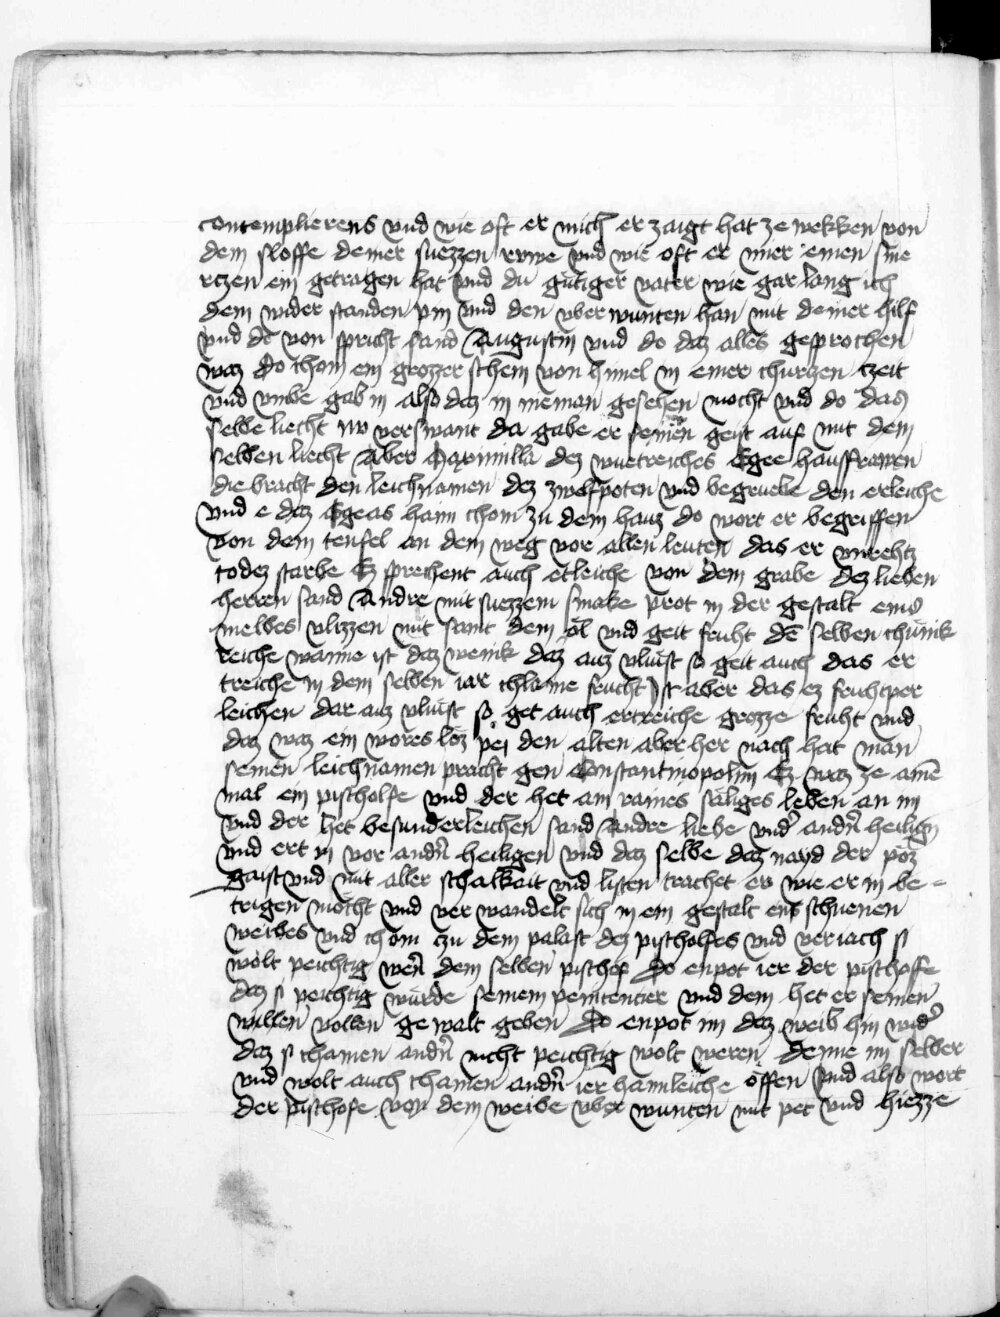 contemplierens vnd wie oft er mich er zaigt hat ze wekken von
dem sloffe deiner suezzen rvwe vnd wie oft er mier einen sme
rczen ein getragen hat vnd du gutiger vater wie gar lang ich
dem wider standen pin vnd den vber wunten han mit deiner hilf
vnd do von spricht sand Augustin vnd do daz alles gesprochen
waz do chom ein grozzer schein von himel in einer churczen czeit
vnd vmbe gab in also daz in nieman gesehen mocht vnd do daz
selbe liecht nv verswant da gabe er seinen geist auf mit dem
selben liecht Aber Maximilla dez wuetreiches Egee hausfrawen
die bracht den leichnamen dez zwelfpoten vnd begruebe den erleiche
vnd e daz Egeas haim chom zu dem hauz do wort er begriffen
von dem teufel an dem weg vor allen leuten das er vnrehtz
todez starbe Ez sprechent auch etleiche von dem grabe dez lieben
herren sand Andre mit suezzem smake prot in der gestalt eins
melbes vlizzen mit samt dem öl vnd geit fruht de selben chunik
reiche wanne ist daz wenik daz auz vluist so geit auch das er
treiche in dem selben iar chlaine frucht Ist aber das ez fruhtper
leichen dar auz vluist so get auch ertreiche grozze fruht vnd
daz waz ein wores loz pei den alten aber her nach hat man
seinen leichnamen pracht gen Constantinopolim Ez waz ze aine
mal ein pischolfe vnd der het ain raines säliges leben an im
vnd der het besunderleichen sand Andre liebe vnd andn heilign
vnd ert in vor andn heiligen vnd daz selbe daz nayd der poz
gaist vnd mit aller schalkait vnd listen trachet er wie er in be-
trigen möcht vnd ver wandelt sich in ein gestalt eins schuenen
weibes vnd chom zu dem palast dez pischolfes vnd veriach si
wolt peichtig wern dem selben pischof Do enpot ier der pischoffe
daz si peichtig wurde seinem penitencier vnd dem het er seinen
willen vollen gewalt geben Do enpot im daz weib hin wider
daz si chainen andn nicht peichtig wolt weren denne im selber
vnd wolt auch chainen andn ier haimleiche offen vnd also wort
der pischofe von dem weibe vber wunten mit pet vnd hiezze